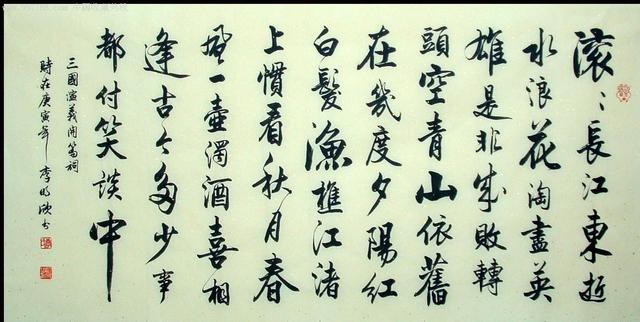 滚〻長江東逝
水浪花淘盡英
雄是非成敗轉
頭空青山依舊
在幾度夕陽紅
白髮漁樵江渚
上慣看秋月春
風一壺濁酒喜相
逢古今多少事
都付笑談中
三國演義開篇祠
時在庚寅年 李明欣书